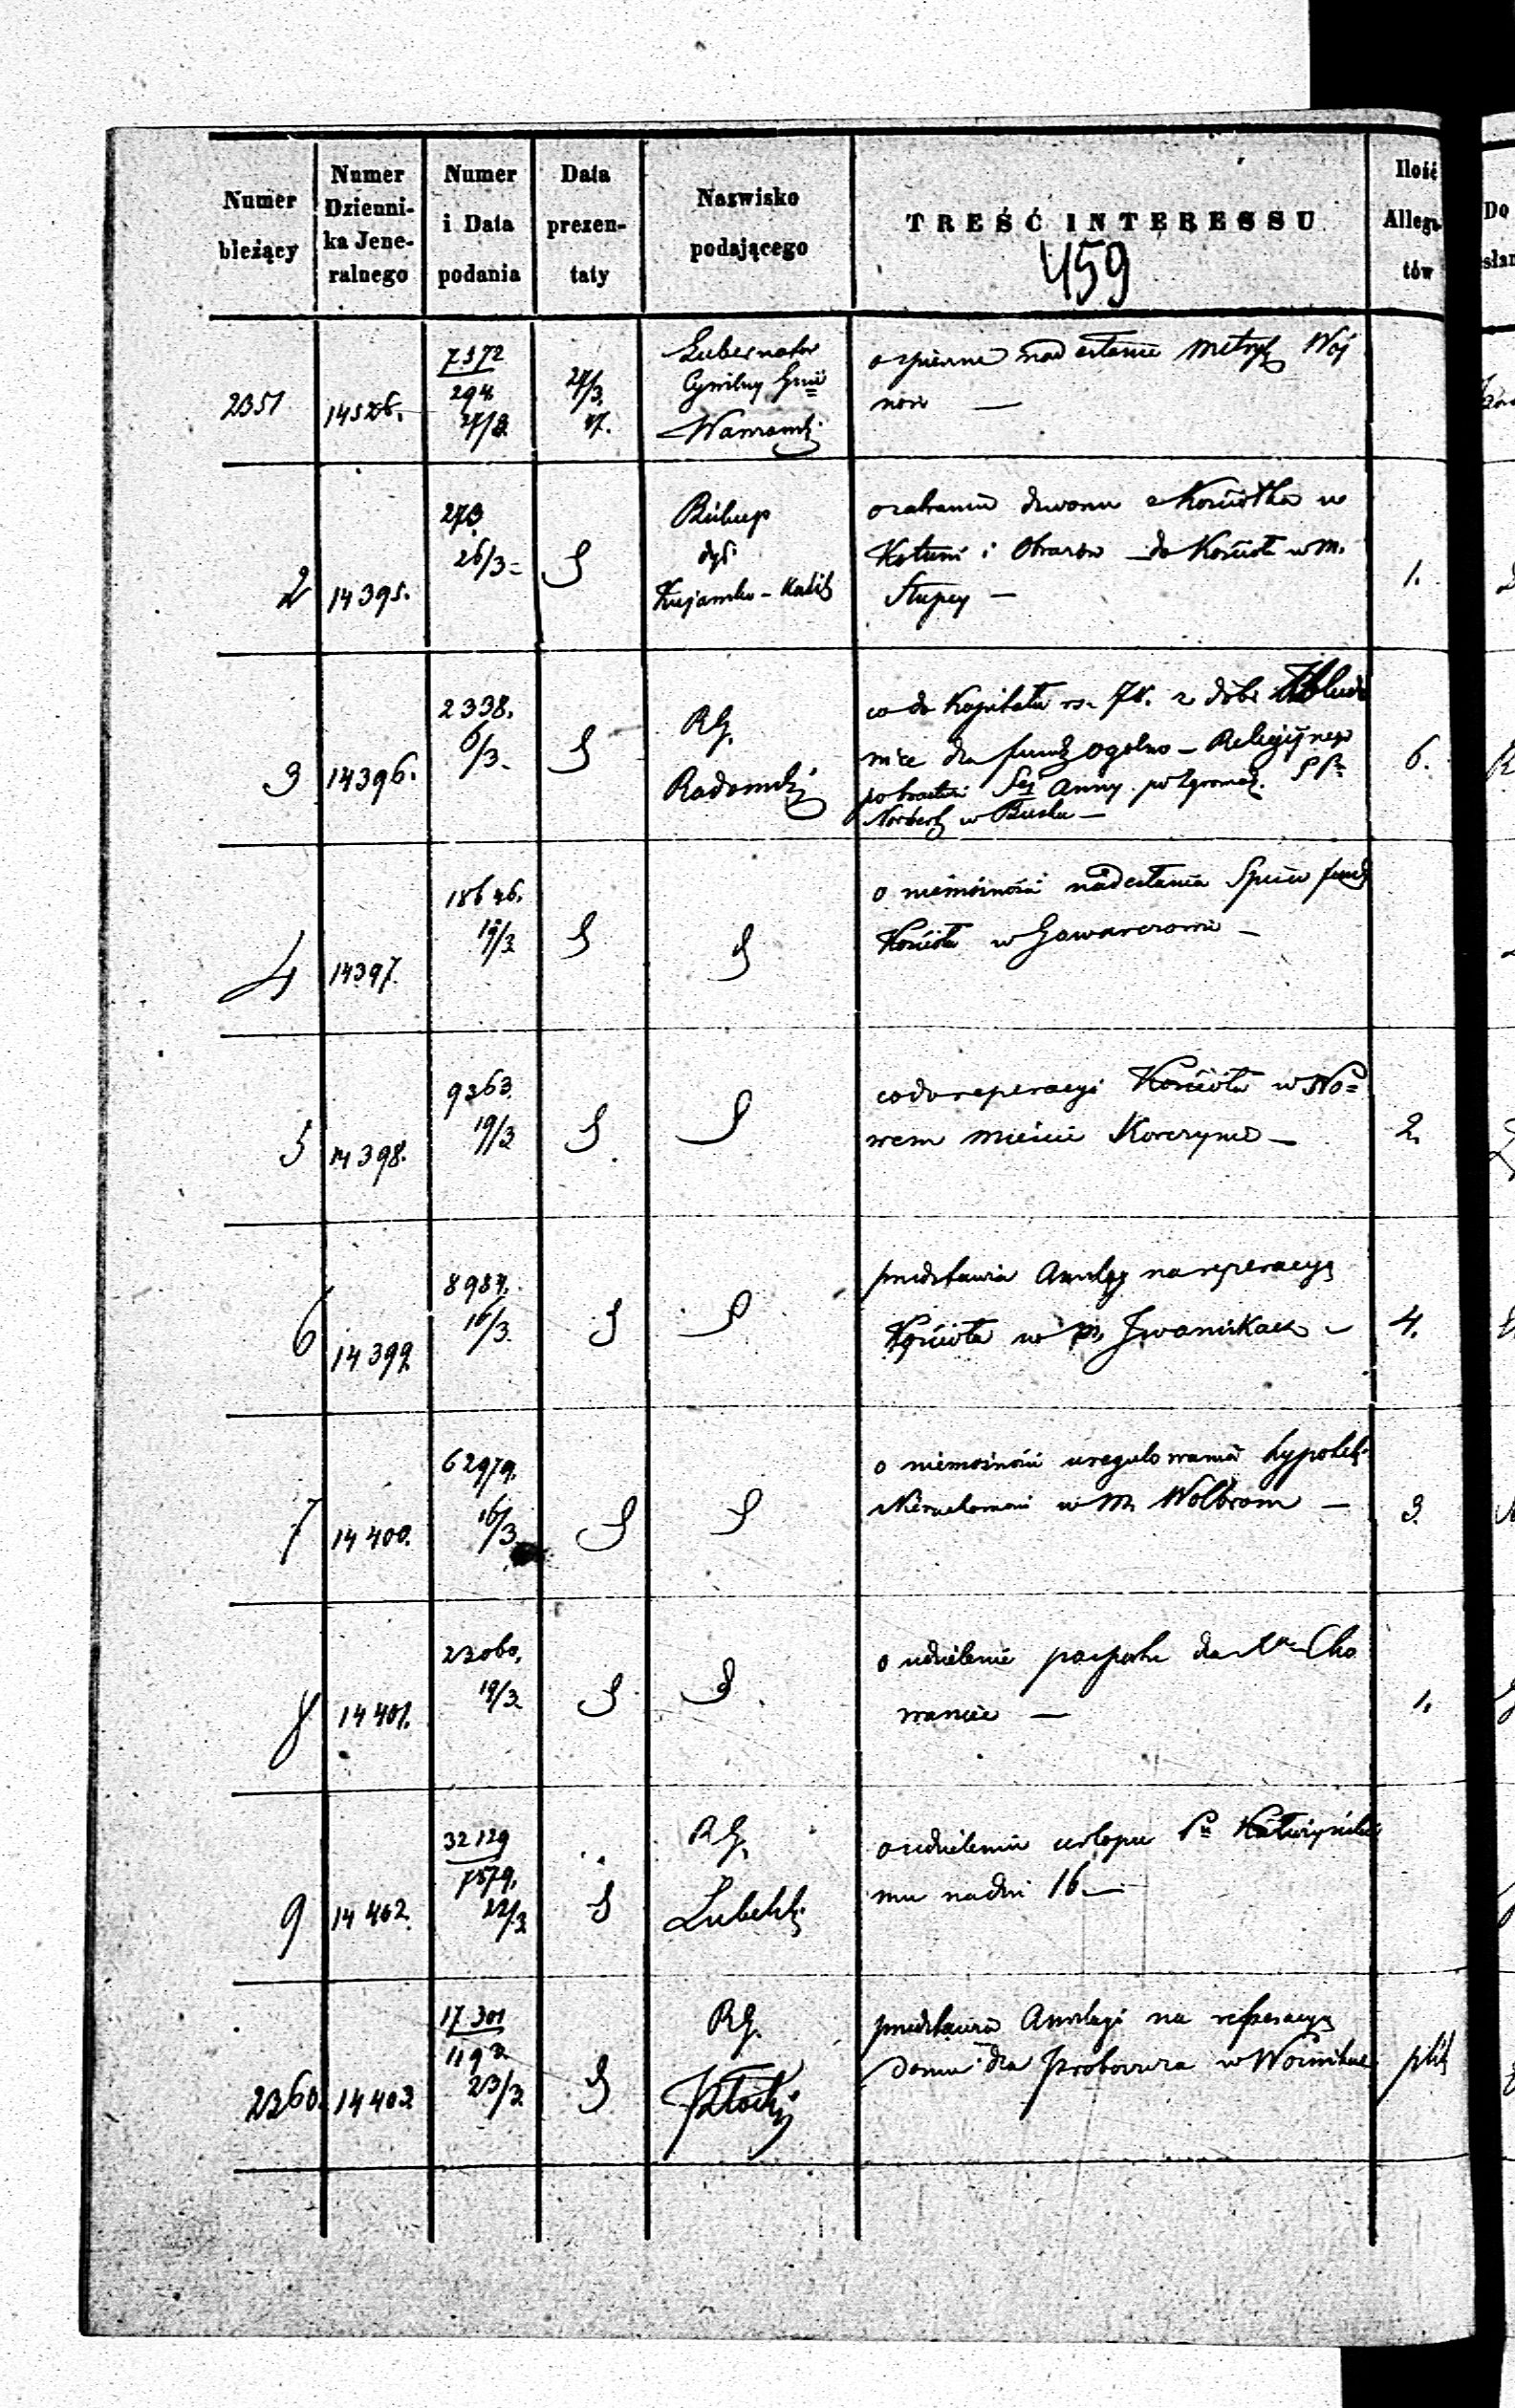 Numer bieżący
Numer Dziennika Jeneralnego
Numer i Data podania
Data prezentaty
Nazwisko podającego
TREŚĆ INTERESSU
Ilość Allegatów
459
2351
7372
294
27/3
27/3
Gubernator
Cywilny
nad esłanie Metryk Woj
2
14395.
273
26/3
Biskup
dyę.
Kujawsko - Kalis
o zabraniu dzwonu z Kościółka w
i Obrazów do Kościoła w m.
Słupcy —
1.
3
14396.
2338.
6/3.
RG.
Radomski
co do Kapitału rs. 75. z dóbr
nice dla fund ogólno - Religijnego
po bractwie Sej Anny po Zgromadz. PP
Norbert w Busku —
6.
4
14397.
18646.
19/3
o niemożności nadesłania Spisu fund
Kościoła w Gowarczowie —
5
14398.
9363.
19/3
co do reperacyi Kościoła w No=
wem mieście Korczynie —
2.
6
14399
8984.
16/3.
przedstawia Anszlag na reperacyą
Kościoła w m. Iwaniskach —
4.
7
14400.
62979.
16/3
o niemożności uregulowania hypotek
Nieruchomości w M. Wolbrom —
3.
8
14401.
23060.
19/3
o udzielenie paszportu dla Xa Cho
wańca —
1.
9
14402.
32129
7579.
22/3
RG.
Lubelski
o udzieleniu urlopu Pu
mu na dni 16 —
2360.
14403
17301
1193
23/3
RG.
Płocki
przedstawia Anszlagi na reperacyą
Domu dla Proboszcza w Woźnikach
plik